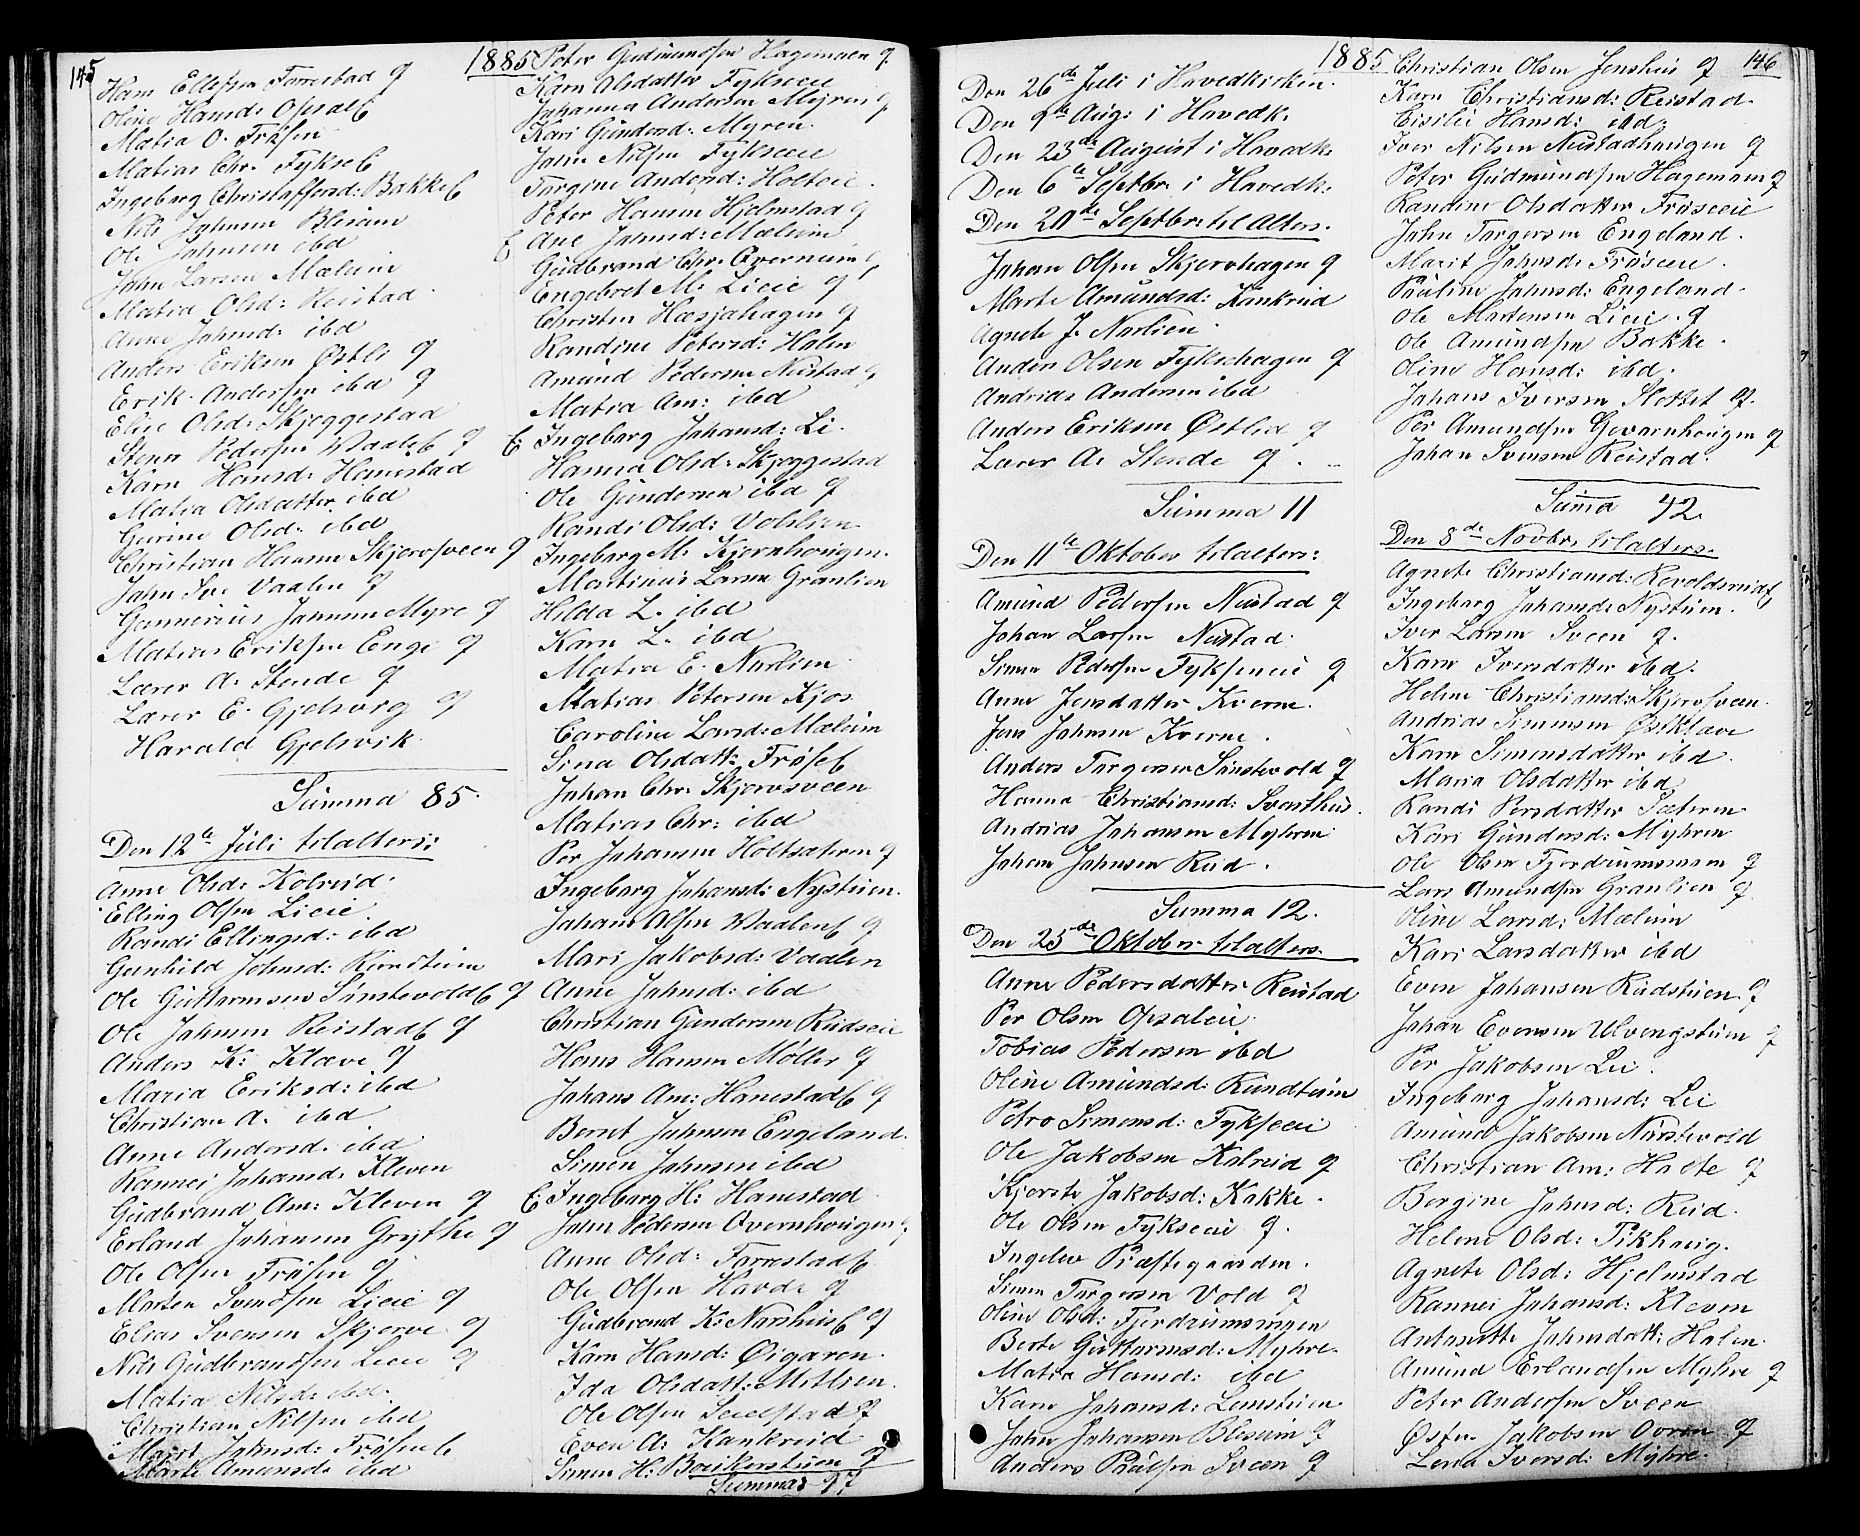 145
1885
Hans Ellefsen Forrestad q
Oline Hansd: Opsal
Matia O. Frøsen
Matias Chr. Fykse
Ingeborg Christoffersd: Bakke
Nils Johnsen Blesium
Ole Johnsen ibd
John Larsen Mælum
Matia Olsd: Reistad
Anne Johnsd: ibd
Anders Eriksen Østli q
Erik Andersen ibd q
Elise Olsd: Skjeggestad
Steen Pedersen Vaale q
Karn Hansd: Hanestad
Matia Olsdatter ibd
Gurine Olsd: ibd
Christian Hansen Skjerosveen q
John Vaalen q
Gunnerius Johnsen Myre q
Matias Eriksen Enge q
Lærer A. Stende q
Lærer E. Gjelsvig q
Harald Gjelsvik
Summa 85.
Den 12te Juli til alters:
Anne Olsd: Kolreid
Elling Olsen Lieie
Randi Ellingsd: ibd
Gunhild Johnsd: Rundtuin
Ole Guttormsen Sønstevold q
Ole Johnsen Reistad q
Anders K: Klæve q
Maria Eriksd: ibd
Christian A. ibd
Anne Andersd. ibd
Rannei Johansd. Kleven
Gudbrand Am: Kleven q
Erland Johansen Grytthe q
Ole Olsen Frøsen q
Morten Svendsen Lieie q
Elias Svensen Skjerve q
Nils Gudbrandsen Leeie q
Matia Nilsd: ibd.
Christian Nilsen ibd
Marit Johnsd: Frøsen
Marte Amunsd. ibd
Peter Gudmundsen Hagemoen q
Karn Olsdatter Fykseeie
Johanna Andersen Myren q
Kari Gundersd. Myren
John Nilsen Fykseeie
Torgine Andersd: Holteie
Peter Hansen Hjelmstad q
Ane Johnsd: Mælum
Gudbrand Chr. Overnuin q
Engebret M. Lieie q
Christen Hæsjahagen q
Randine Petersd: Halen
Amund Pedersen Neustad q
Matia Am: ibd
E: Ingeborg Johansd: Li.
Hanna Olsd: Skjeggestad
Ole Gundersen ibd q
Randi Olsd: Volslien
Ingeborg M. Kjernhougen.
Martinus Larsen Granlien
Hilda L. ibd
Karn L. ibd
Matia E. Norlien
Matias Petersen Kjos
Caroline Larsd: Mælum
Sina Olsdatt: Frøse
Johan Chr. Skjerosveen
Matias Chr: ibd
Per Johansen Holtsæteren q
Ingeborg Johansd: Nystuen.
Johans Olsen Vaalen q
Mari Jakobsd: Vaalen
Anne Johnsd: ibd
Christian Gundersen Rudseie
Hans Hansen Møller q
Johans Am: Hanestad q
Bernt Johnsen Engeland.
Simen Johnsen ibd
E: Ingeborg H: Hanestad
John Pedersen Overnhougen q
Anne Olsd: Forrestad
Ole Olsen Havde q
Gudbrand K: Norshus q
Karn Hansd: Øigaren.
Ida Olsdatt: Mitlien.
Ole Olsen Seielstad q
Even A: Kankrud
Simen H: Boukerstuen q
Summa 97
1885
146
Den 26de Juli i Havedkirken.
Den 9de Aug: i Havedk.
Den 23de August i Havedk.
Den 6te Septbr. i Havedk.
Den 20de Septbr. til Alters.
Johan Olsen Skjerohagen q
Marte Amundsd: Kankrud
Agnete J. Norlien
Anders Olsen Fyksehagen q
Andrias Andersen ibd
Anders Eriksen Østlia q
Lærer A. Stende q
Summa 11
Den 11te Oktober til alters:
Amund Pedersen Neustad q
Johan Larsen Neustad.
Simen Pedersen Fykseneie q
Anne Jensdatter Kverne.
Jens Johnsen Kverne.
Anders Torgersen Sønstevold q
Hanna Christiansd: Svarthus.
Andrias Johansen Myhren
Johan Johnsen Rud.
Summa 12.
Den 25de Oktober til alters.
Anne Pedersdatter Reistad
Per Olsen Opsaleie
Tobias Pedersen ibd
Oline Amundsd: Rundtuin
Petro Simensd: Fykseeie
Ole Jakobsen Kolreid q
Kjersti Jakobsd: Kakke.
Ole Olsen Fykseeie q.
Ingelev Præstegaarden.
Simen Torgersen Vold q
Oline Olsd: Fjerdrumsmoen
Berte Guttormsd: Myhre.
Matia Hansd: ibd
Karn Johansd: Lemstuen
John Johansen Blesium q
Anders Paulsen Sveen q
Christian Olsen Jenshus q
Karn Christiansd: Reistad.
Cisilie Hansd: ibd.
Iver Nilsen Neustadhaugen q
Peter Gudmundsen Hagemoen q
Randine Olsdatter Frøseeie
John Torgersen Engeland.
Marit Johnsd. Frøseeie.
Pauline Johnsd: Engeland.
Ole Martensen Lieie. q
Ole Amundsen Bakke.
Oline Hansd: ibd.
Johans Iversen Slottet q.
Per Amundsen Govarnhougen q
Johan Svensen Reistad.
Suma 42.
Den 8de Novbr. til alters.
Agnete Christiansd: Revoldsrud
Ingeborg Johansd. Nystuen.
Iver Larsen Sveen q.
Karn Iversdatter ibd.
Helene Christiansd: Skjerosveen.
Andrias Simensen Øsiklæve
Karn Simensdatter ibd.
Maria Olsdatter ibd
Randi Persdatter Sæteren
Kari Gundersd: Myhren
Ole Olsen Fjerdrumsmoen q
Lars Amundsen Granlien q
Oline Larsd: Mælum
Kari Larsdatter ibd
Even Johansen Rudstuen q
Johan Evensen Ulvengstuen q
Per Jakobsen Lie.
Ingeborg Johansd: Lie
Amund Jakobsen Nørstevold
Christian Am: Holte q
Bergine Johnsd: Rud.
Helene Olsd: Pikhaug.
Agnete Olsd: Hjelmstad
Rannei Johansd: Kleven
Antonette Johnsdatt: Halen.
Amund Erlandsen Myhre q
Peter Andersen Sveen
Østen Jakobsen Ovren q
Lena Iversd: Myhre.